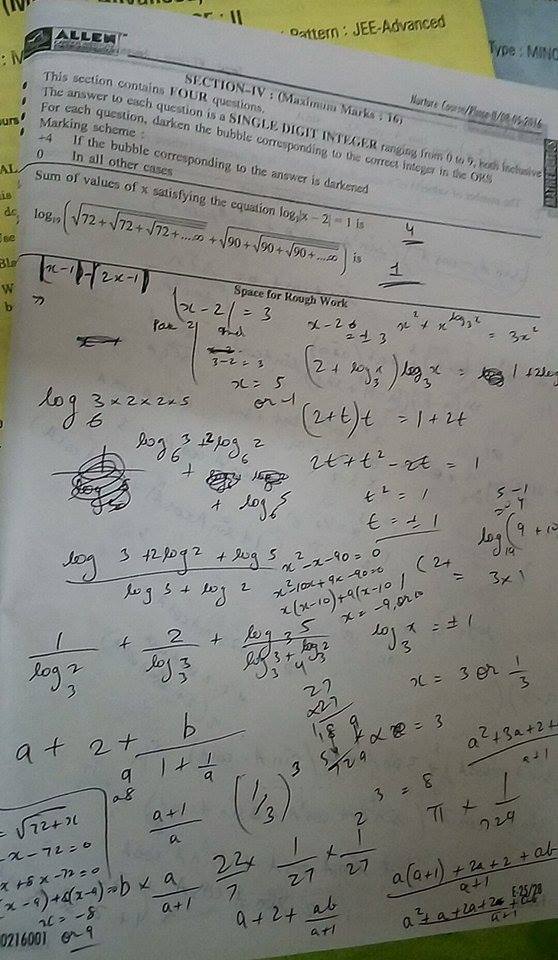 Pattern : JEE-Advanced
ALLEN
Type : MINO
Nurture Course/Phase-II/08-05-2016
SECTION-IV : (Maximum Marks : 16)
This section contains FOUR questions.
The answer to each question is a SINGLE DIGIT INTEGER ranging from 0 to 9, both inclusive
For each question, darken the bubble corresponding to the correct integer in the ORS
Marking scheme :
+4 If the bubble corresponding to the answer is darkened
0 In all other cases
Sum of values of x satisfying the equation log₃|x – 2| = 1 is 4
log₁₉(√72+√72+√72+....∞ + √90+√90+√90+....∞) is 1
Space for Rough Work
|x-1|-|2x-1|
|x-2| = 3
x-2 = ±3
x² + x^log₃x² = 3x²
3-2=3
x = 5
or -1
(2 + log₃x) log₃x = 1 + 2log
log₆ 3×2×2×5
(2+t)t = 1+2t
log₆3 + 2log₆2
+ log₆5
2t+t²-2t = 1
t² = 1
t = ±1
5-1
= 4
log₁₉(9+10
log 3 + 2log2 + log 5
log 3 + log 2
x²-x-90=0
x²-10x+9x-90=0
x(x-10)+9(x-10)
x = -9, or 10
3×1
1/log₃2 + 2/log₃3 + log₃5/log₃3+log₃2
log₃x = ±1
x = 3 or 1/3
27
×27
189
54
729
a + 2 + b/1+1/a
a+1/a
(1/3)³
3 = 8
π × 1/729
a²+3a+2+
a+1
= √72+x
-x-72=0
x+8x-72=0
(x-9)+8(x-9)=0
x = -8
or 9
b × a/a+1
22/7 × 1/27 × 1/27
a+2+ab/a+1
a(a+1)+2a+2+ab
a+1
a²+a+2a+2+
a+1
0216001
E-25/28